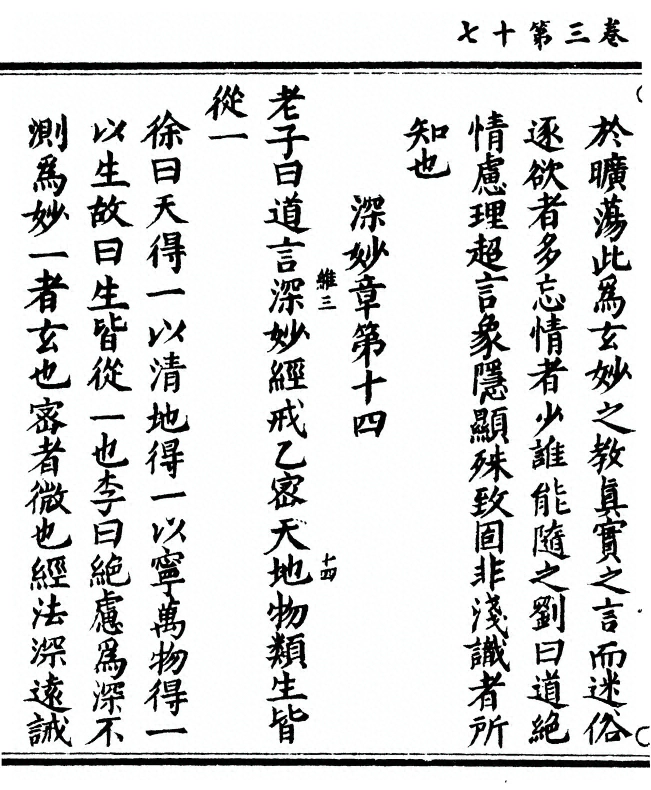 卷三第十七
於曠蕩此為玄妙之教真實之言而迷俗
逐欲者多忘情者少誰能隨之劉曰道絕
情慮理超言象隱顯殊致固非淺識者所
知也
深妙章第十四
維三
十四
老子曰道言深妙經戒乙密天地物類生皆
從一
徐曰天得一以清地得一以寧萬物得一
以生故曰生皆從一也李曰絕慮為深不
測為妙一者玄也密者微也經法深遠誡